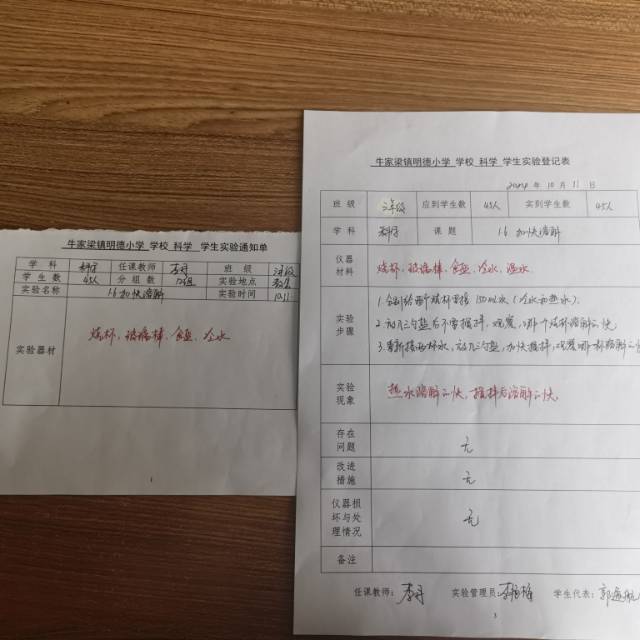 牛家梁镇明德小学 学校 科学 学生实验通知单
学 科 科学 任课教师 李丹 班 级 三年级
学 生 数 45人 分 组 数 12组 实验地点 教室
实验名称 16 加快溶解 实验时间 10.11
实验器材 烧杯、玻璃棒、食盐、冷水
1
牛家梁镇明德小学 学校 科学 学生实验登记表
2024 年 10 月 11 日
班 级 三年级 应到学生数 45人 实到学生数 45人
学 科 科学 课 题 16 加快溶解
仪器材料 烧杯、玻璃棒、食盐、冷水、温水
实验步骤
1.分别给两个烧杯里接150ml水(冷水和热水).
2.
3.重新接两杯水,
实验现象 热水溶解的快、搅拌后溶解的快.
存在问题 无
改进措施 无
仪器损坏与处理情况 无
备注
任课教师: 李丹 实验管理员: 学生代表:
3